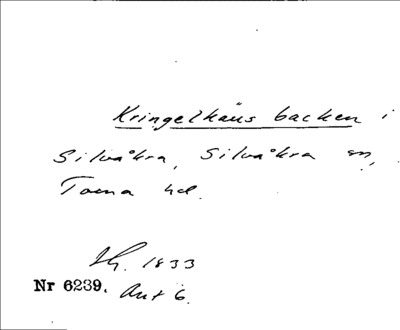 Kringelhäus backen i
Silvåkra, Silvåkra sn,
Torna hd.
1833
Nr 6239. Akt 6.